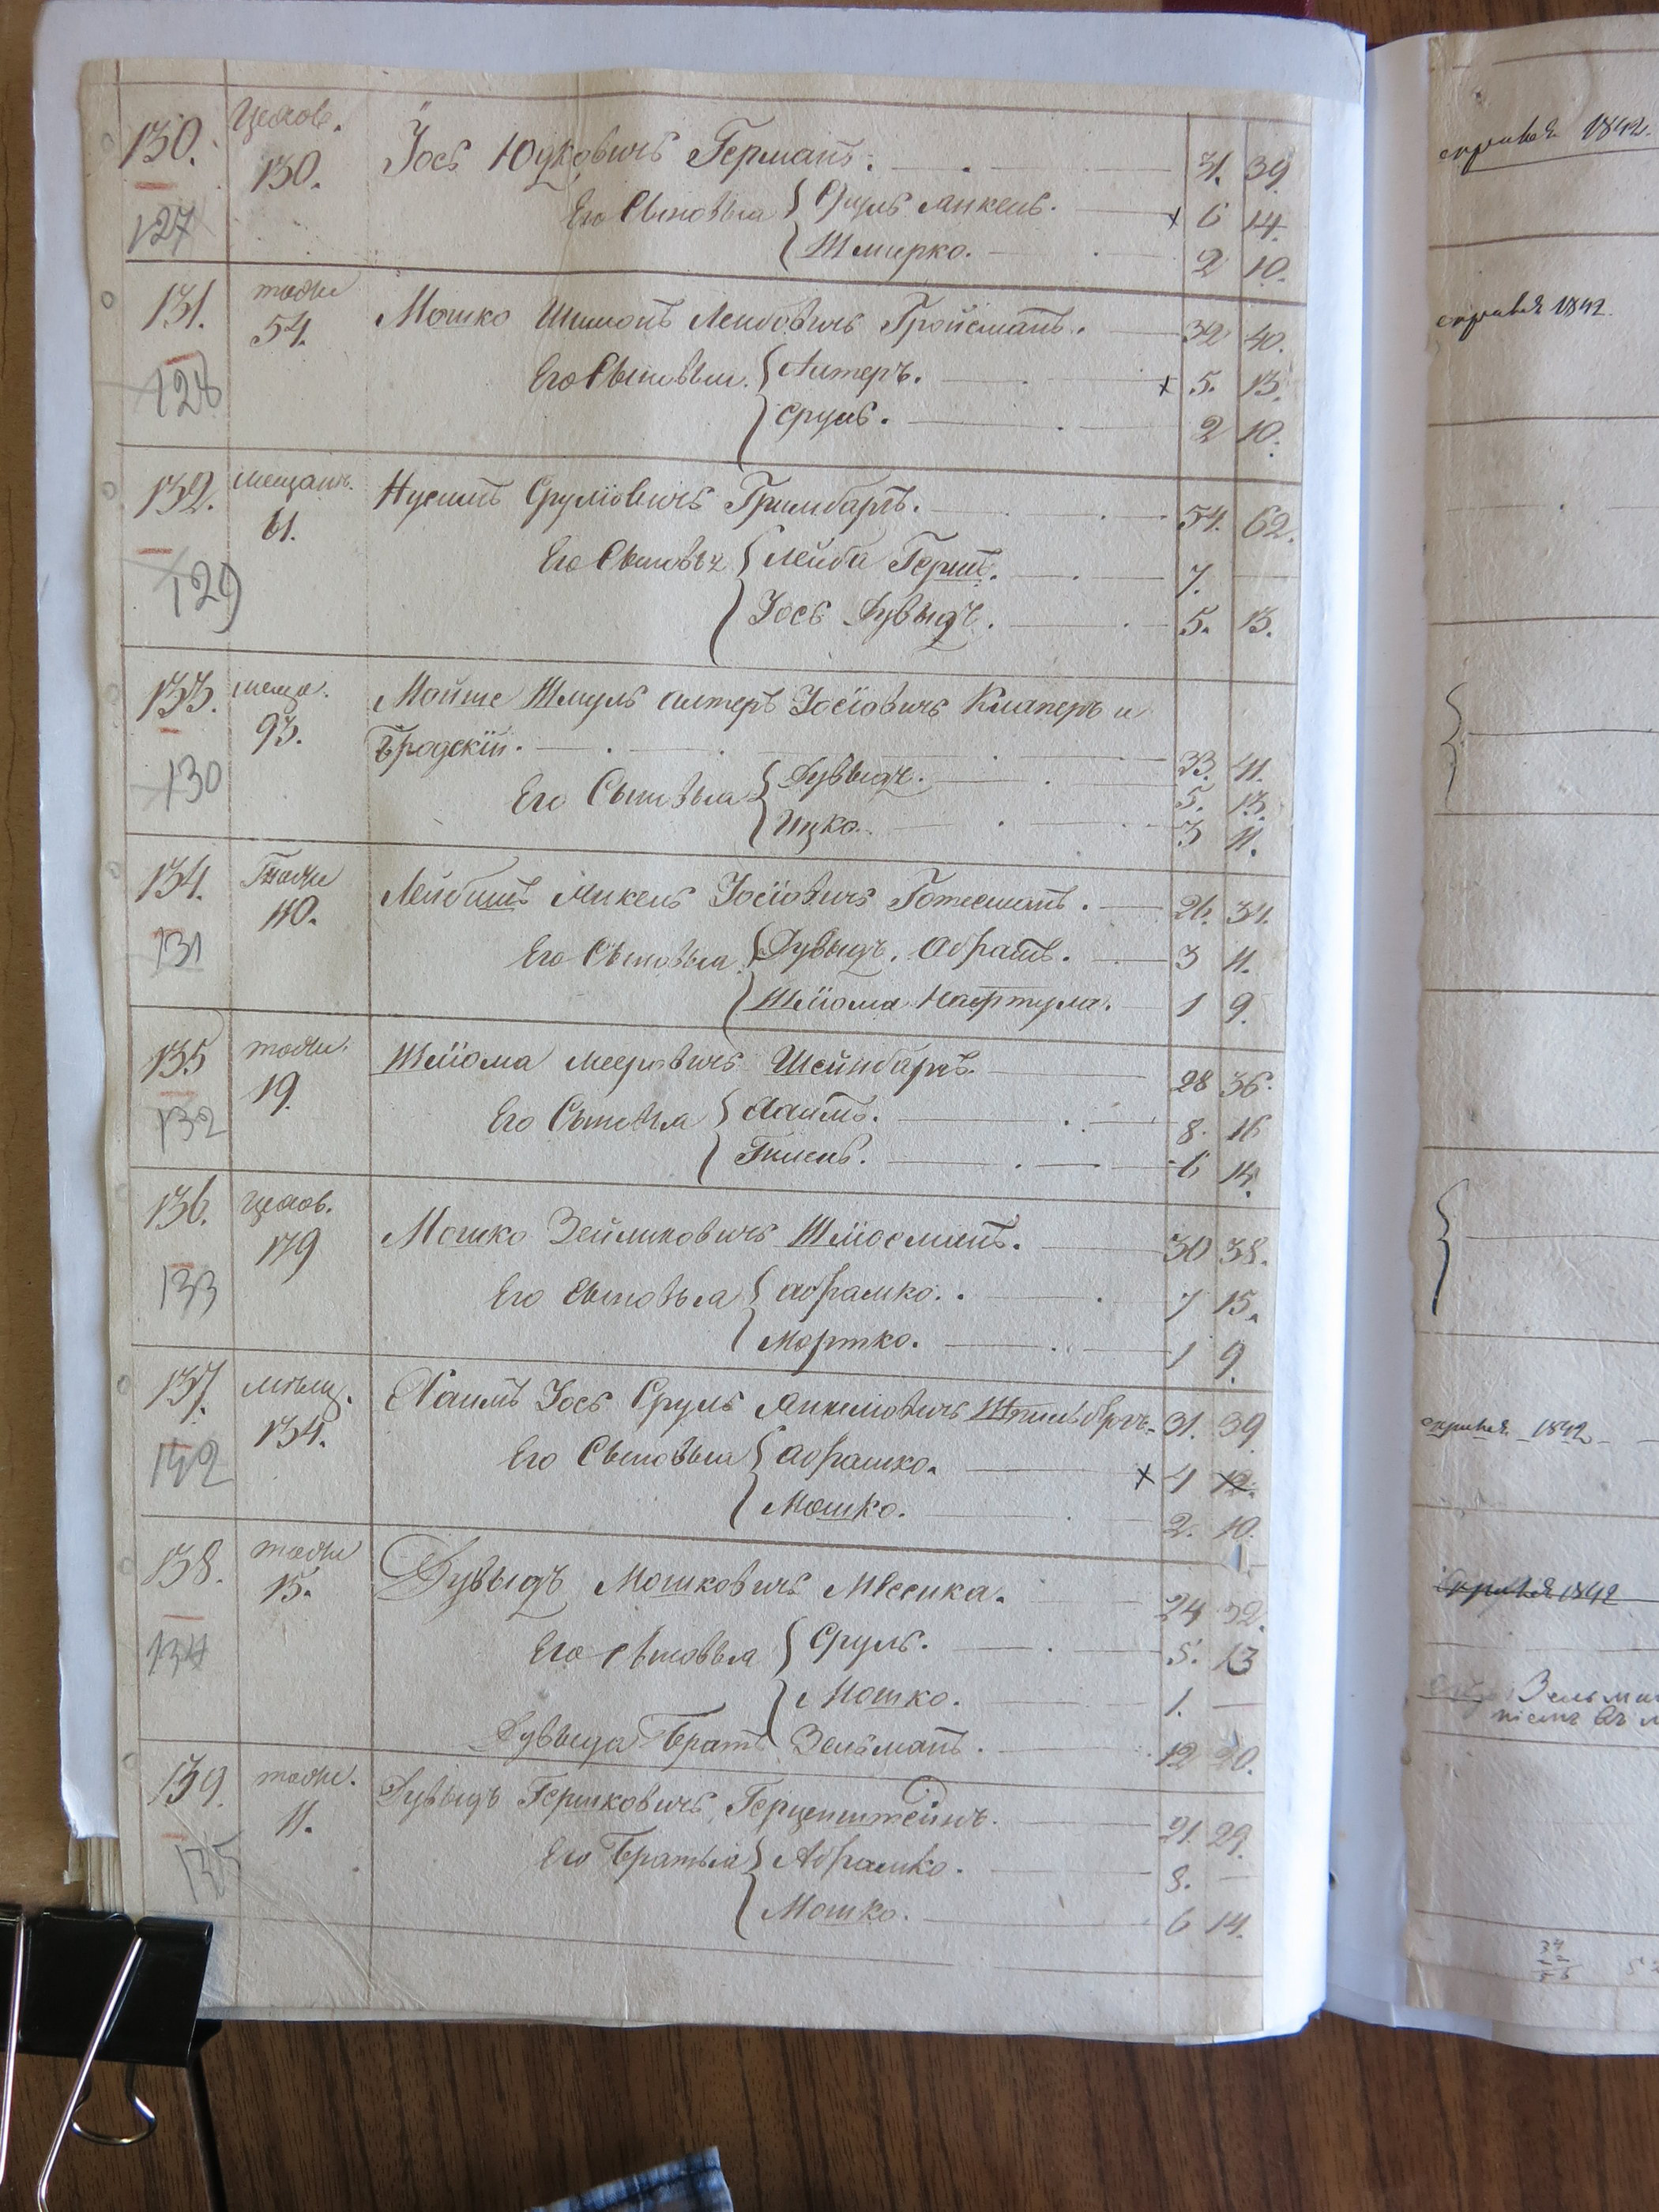 130. Цехов. 130. Іось Юдковичъ Германъ. 31. 39.
127 Его Сыновья Сруль Анкель. х 6 14.
Шмерко. 2 10.
131. тоже 54. Мошко Шимонъ Лейбовичъ Гройсманъ. 32 40.
128 Его Сыновья Алтеръ. х 5. 13.
Сруль. 2 10.
132. мещанъ. 61. Нусинъ Сруліовичъ Гримбаргъ. 54. 62.
129 Его Сыновья Лейба Герш. 7. —
Іось Дувыдъ. 5. 13.
133. меща. 93. Мойше Шмуль Алтеръ Іосіовичъ Клаперъ и
Бродскій. 33. 41.
130 Его Сыновья Дувыдъ. 5. 13.
Ицко. 3 11.
134. Тоже 110. Лейбишъ Микель Іосіовичъ Готесманъ. 26. 34.
131 Его Сыновья Дувыдъ, Абрамъ. 3 11.
Шліома Нафтула. 1 9.
135 тоже. 19. Шліома Мееровичъ Шейнбаргъ. 28 36.
132 Его Сыновья Хаимъ. 8. 16
Гилель. 6 14.
136. цехов. 179 Мошко Зейликовичъ Шліосманъ. 30 38.
133 Его Сыновья Абрамко. 7 15.
Мортко. 1 9.
137. мѣщ. 134. Хаимъ Іось Сруль Анкиліовичъ Шпильбергъ. 31. 39.
Его Сыновья Абрамко. х 4 12.
Мошко. 2. 10.
138. тоже 15. Дувыдъ Мошковичъ 24 32.
134 Его сыновья Сруль. 5. 13
Мошко. 1. —
Дувыда Братъ Зельманъ. 12 20.
139. тоже. 11. Дувыдъ Гершковичъ Герценштейнъ. 21. 29.
135 Его Братья Абрамко. 8. —
Мошко. 6 14.
1842.
1842.
1842
1842
Зельман